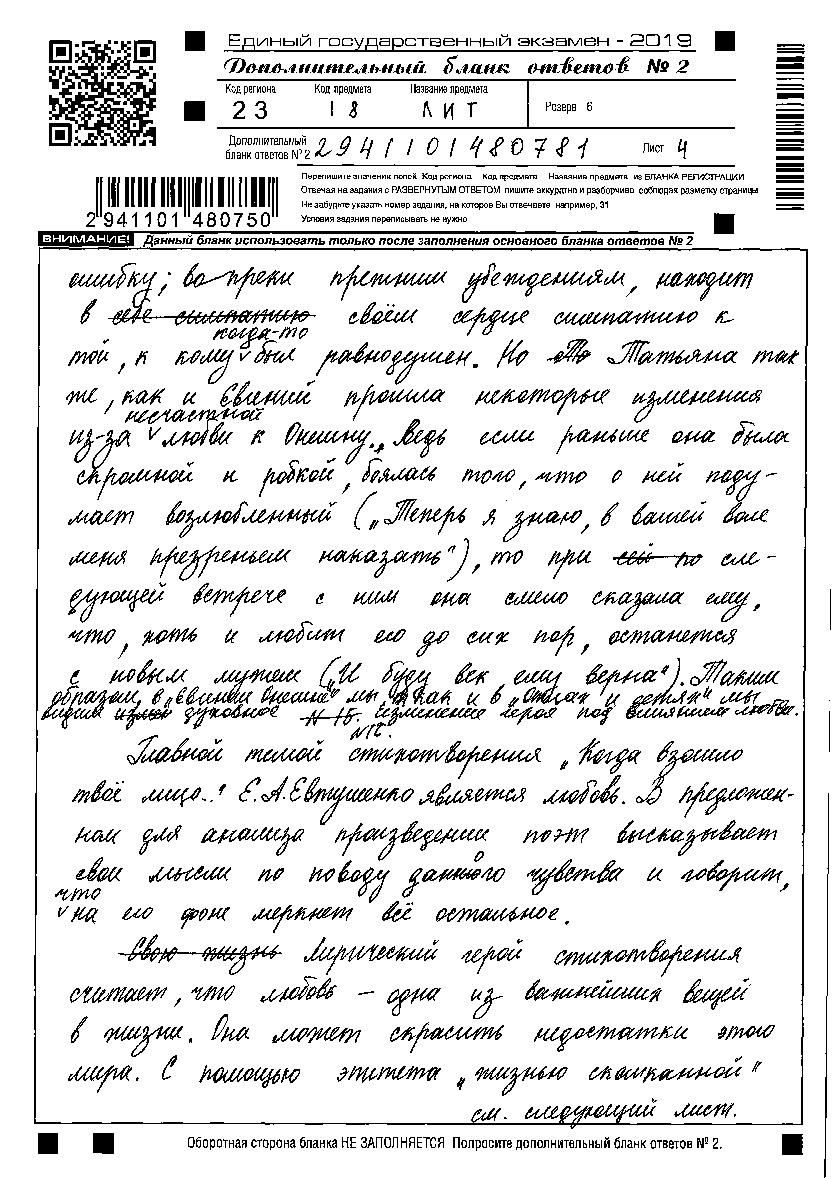 Единый государственный экзамен - 2019
Дополнительный бланк ответов № 2
Код региона Код предмета Название предмета
23 18 ЛИТ Резерв 6
Дополнительный бланк ответов № 2 2941101480781 Лист 4
Перепишите значения полей Код региона Код предмета Название предмета из БЛАНКА РЕГИСТРАЦИИ
Отвечая на задания с РАЗВЕРНУТЫМ ОТВЕТОМ пишите аккуратно и разборчиво соблюдая разметку страницы
Не забудьте указать номер задания, на которое Вы отвечаете например, 31
Условия задания переписывать не нужно
2 941101 480750
ВНИМАНИЕ! Данный бланк использовать только после заполнения основного бланка ответов № 2
ошибку; вопреки прежним убеждениям, находит
в себе симпатию своём сердце симпатию к
когда-то
той, к кому был равнодушен. Но То Татьяна так
же, как и Евгений прошла некоторые изменения
несчастной
из-за любви к Онегину. Ведь если раньше она была
скромной и робкой, боялась того, что о ней поду-
мает возлюбленный („Теперь я знаю, в вашей воле
меня презреньем наказать"), то при сей по сле-
дующей встрече с ним она смело сказала ему,
что, хоть и любит его до сих пор, останется
с новым мужем („И буду век ему верна"). Таким
образом, в „Евгении Онегине" мы как и в „Отцах и детях" мы
видим духовное N 16. изменение героя под влиянием любви.
N16.
Главной темой стихотворения „Когда взошло
твоё лицо.." Е.А.Евтушенко является любовь. В предложен-
ном для анализа произведении поэт высказывает
свои мысли по поводу данного чувства и говорит,
что
на его фоне меркнет всё остальное.
Свою жизнь Лирический герой стихотворения
считает, что любовь – одна из важнейших вещей
в жизни. Она может скрасить недостатки этого
мира. С помощью эпитета „жизнью скомканной"
см. следующий лист.
Оборотная сторона бланка НЕ ЗАПОЛНЯЕТСЯ Попросите дополнительный бланк ответов № 2.